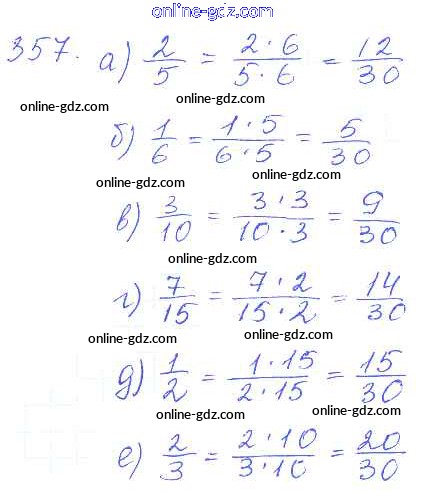 online-gdz.com
357. а) 2/5 = 2·6/5·6 = 12/30
online-gdz.com online-gdz.com
б) 1/6 = 1·5/6·5 = 5/30
online-gdz.com
в) 3/10 = 3·3/10·3 = 9/30
online-gdz.com
г) 7/15 = 7·2/15·2 = 14/30
online-gdz.com
д) 1/2 = 1·15/2·15 = 15/30
online-gdz.com online-gdz.com
е) 2/3 = 2·10/3·10 = 20/30
online-gdz.com